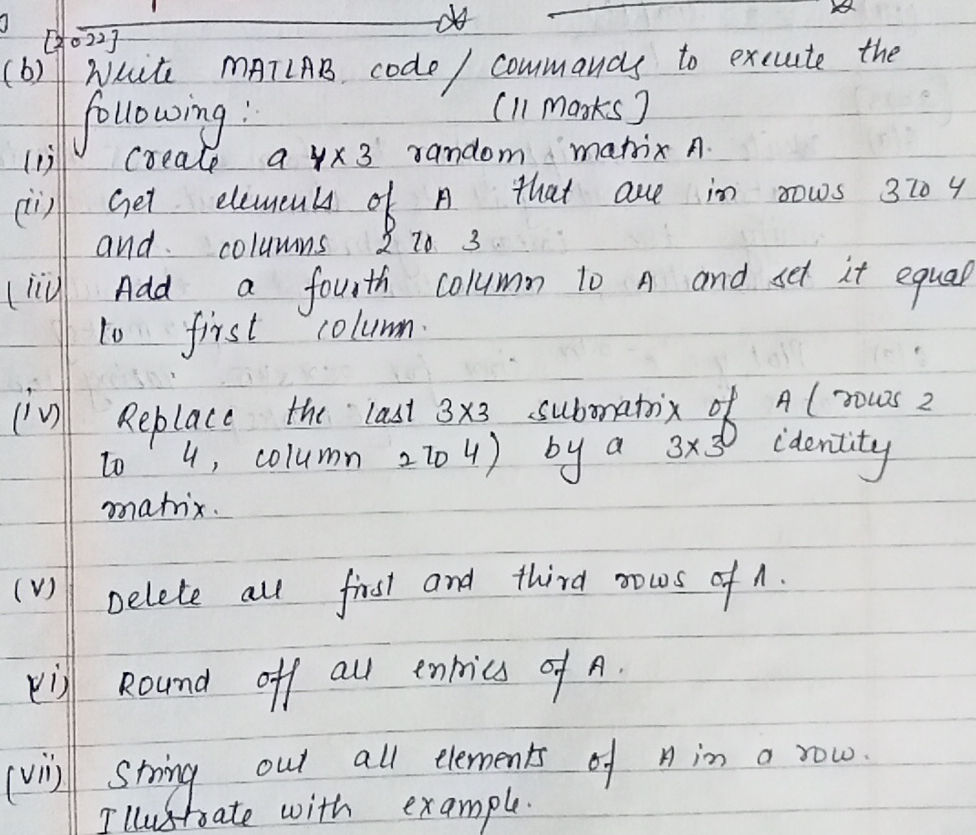 [2022]
(b) Write MATLAB code / commands to execute the
following : (11 Marks]
(i) Create a 4×3 random matrix A.
(ii) Get elements of A that are in rows 3 to 4
and columns 2 to 3
(iii) Add a fourth column to A and set it equal
to first column.
(iv) Replace the last 3×3 submatrix of A ( rows 2
to 4, column 2 to 4) by a 3×3 identity
matrix.
(v) Delete all first and third rows of A.
vi) Round off all entries of A.
(vii) String out all elements of A in a row.
Illustrate with example.